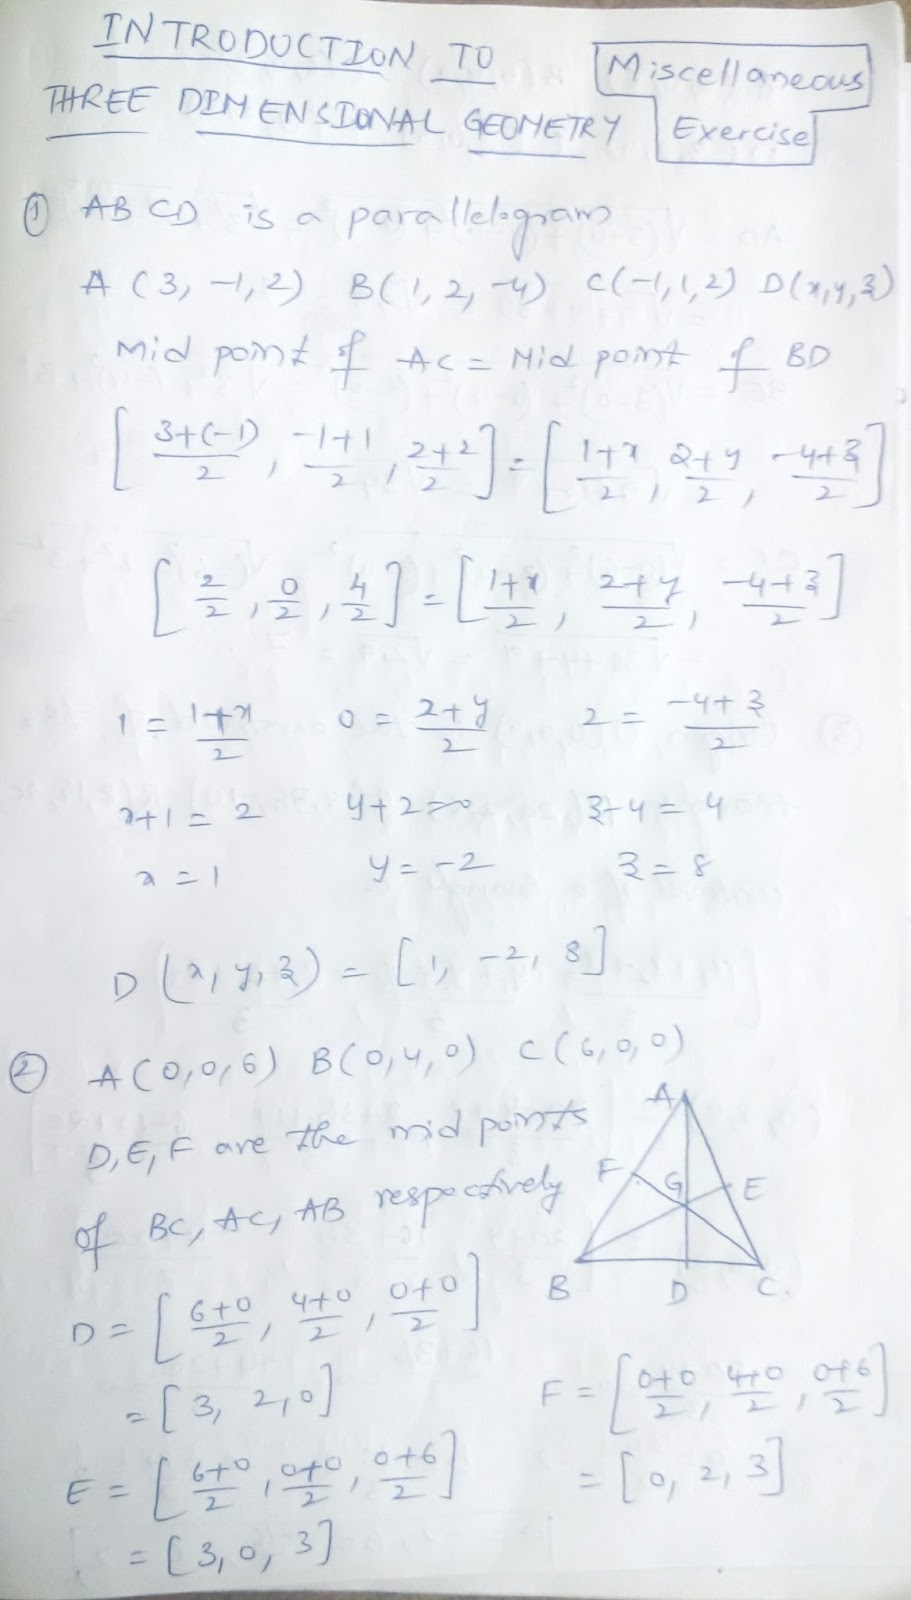 INTRODUCTION TO
THREE DIMENSIONAL GEOMETRY
Miscellaneous
Exercise
① ABCD is a parallelogram
A (3, -1, 2) B(1, 2, -4) C(-1, 1, 2) D(x, y, z)
Mid point of AC = Mid point of BD
[ (3+(-1))/2 , (-1+1)/2 , (2+2)/2 ] = [ (1+x)/2 , (2+y)/2 , (-4+z)/2 ]
[ 2/2 , 0/2 , 4/2 ] = [ (1+x)/2 , (2+y)/2 , (-4+z)/2 ]
1 = (1+x)/2 0 = (2+y)/2 2 = (-4+z)/2
x+1 = 2 y+2=0 z-4 = 4
x = 1 y = -2 z = 8
D (x, y, z) = [1, -2, 8]
② A(0,0,6) B(0,4,0) C(6,0,0)
D,E,F are the mid points
of BC, AC, AB respectively
A
F G E
B D C.
D = [ (6+0)/2 , (4+0)/2 , (0+0)/2 ]
= [3, 2, 0]
E = [ (6+0)/2 , (0+0)/2 , (0+6)/2 ]
= [3, 0, 3]
F = [ (0+0)/2 , (4+0)/2 , (0+6)/2 ]
= [0, 2, 3]